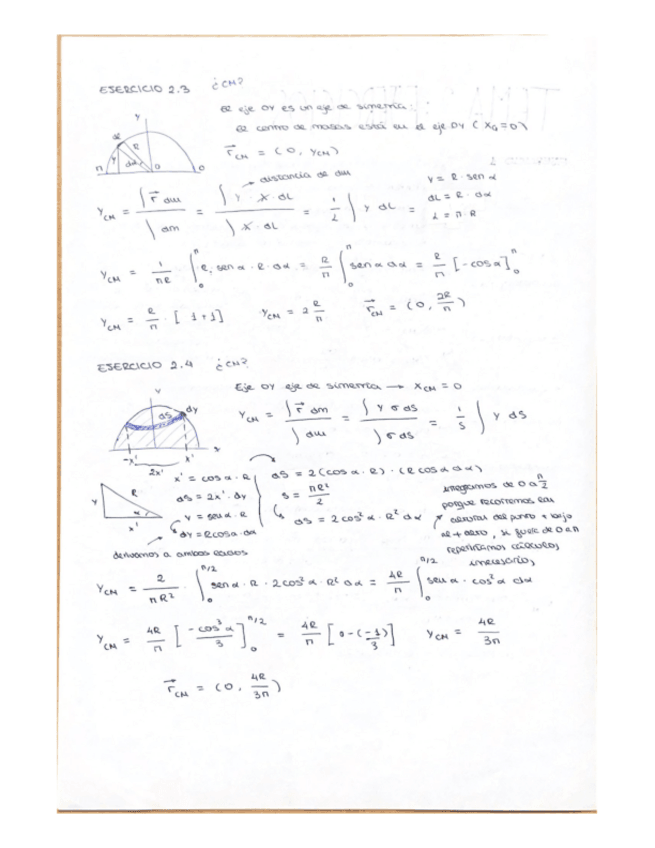 EJERCICIO 2.3 ¿CM?
El eje OY es un eje de simetría:
El centro de masas está en el eje OY ( X_G = 0 )
r⃗_CM = ( 0, Y_CM )
distancia de dm
Y_CM = ∫ r⃗ dm / ∫ dm = ∫ Y · λ · dL / ∫ λ · dL = 1/L ∫ Y dL =
Y = R · sen α
dL = R · dα
L = π · R
Y_CM = 1/πR ∫_0^π R · sen α · R · dα = R/π ∫_0^π sen α dα = R/π [-cos α]_0^π
Y_CM = R/π · [ 1+1 ] Y_CM = 2 R/π r⃗_CM = ( 0, 2R/π )
EJERCICIO 2.4 ¿CM?
Eje OY eje de simetría → X_CM = 0
Y_CM = ∫ r⃗ dm / ∫ dm = ∫ Y σ dS / ∫ σ dS = 1/S ∫ Y dS
dS dy
-x' x'
2x'
x' = cos α · R
dS = 2x' · dy
Y = sen α · R
dy = R cos α · dα
derivamos a ambos lados
Y R α x'
dS = 2 (cos α · R) · (R cos α dα)
S = πR²/2
dS = 2 cos² α · R² dα
integramos de 0 a π/2
porque recorremos las
alturas del punto + bajo
al + alto, si fuese de 0 a π
repetiríamos cálculos
innecesarios
Y_CM = 2/πR² · ∫_0^π/2 sen α · R · 2 cos² α · R² dα = 4R/π ∫_0^π/2 sen α · cos² α dα
Y_CM = 4R/π [ -cos³ α / 3 ]_0^π/2 = 4R/π [ 0 - (-1/3) ] Y_CM = 4R/3π
r⃗_CM = ( 0, 4R/3π )